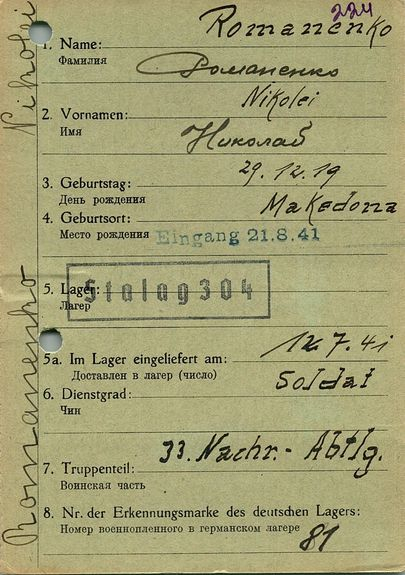 224
Romanenko
1. Name:
Фамилия
Романенко
Nikolei
2. Vornamen:
Имя
Николай
29.12.19
3. Geburtstag:
День рождения
Makedona
4. Geburtsort:
Место рождения
Eingang 21.8.41
5. Lager:
Лагерь
Stalag 304
12.7.41
5a. Im Lager eingeliefert am:
Доставлен в лагер (число)
Soldat
6. Dienstgrad:
Чин
33. Nachr.- Abtlg.
7. Truppenteil:
Воинская часть
8. Nr. der Erkennungsmarke des deutschen Lagers:
Номер военнопленного в германском лагере
81
Romanenko Nikolei